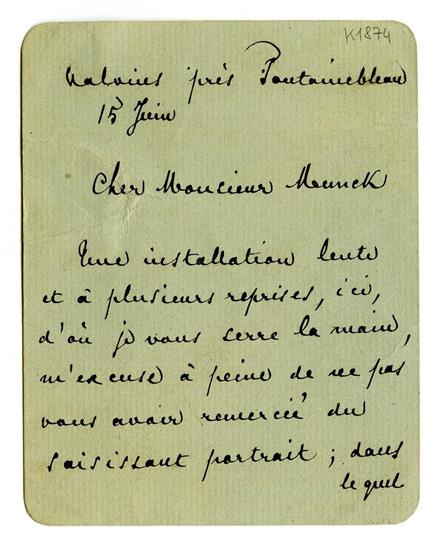 K1874
Valvins près Fontainebleau
15 Juin
Cher Monsieur Munck
Une installation lente
et à plusieurs reprises, ici,
d'où je vous serre la main,
m'excuse à peine de ne pas
vous avoir remercié du
saisissant portrait ; dans
lequel